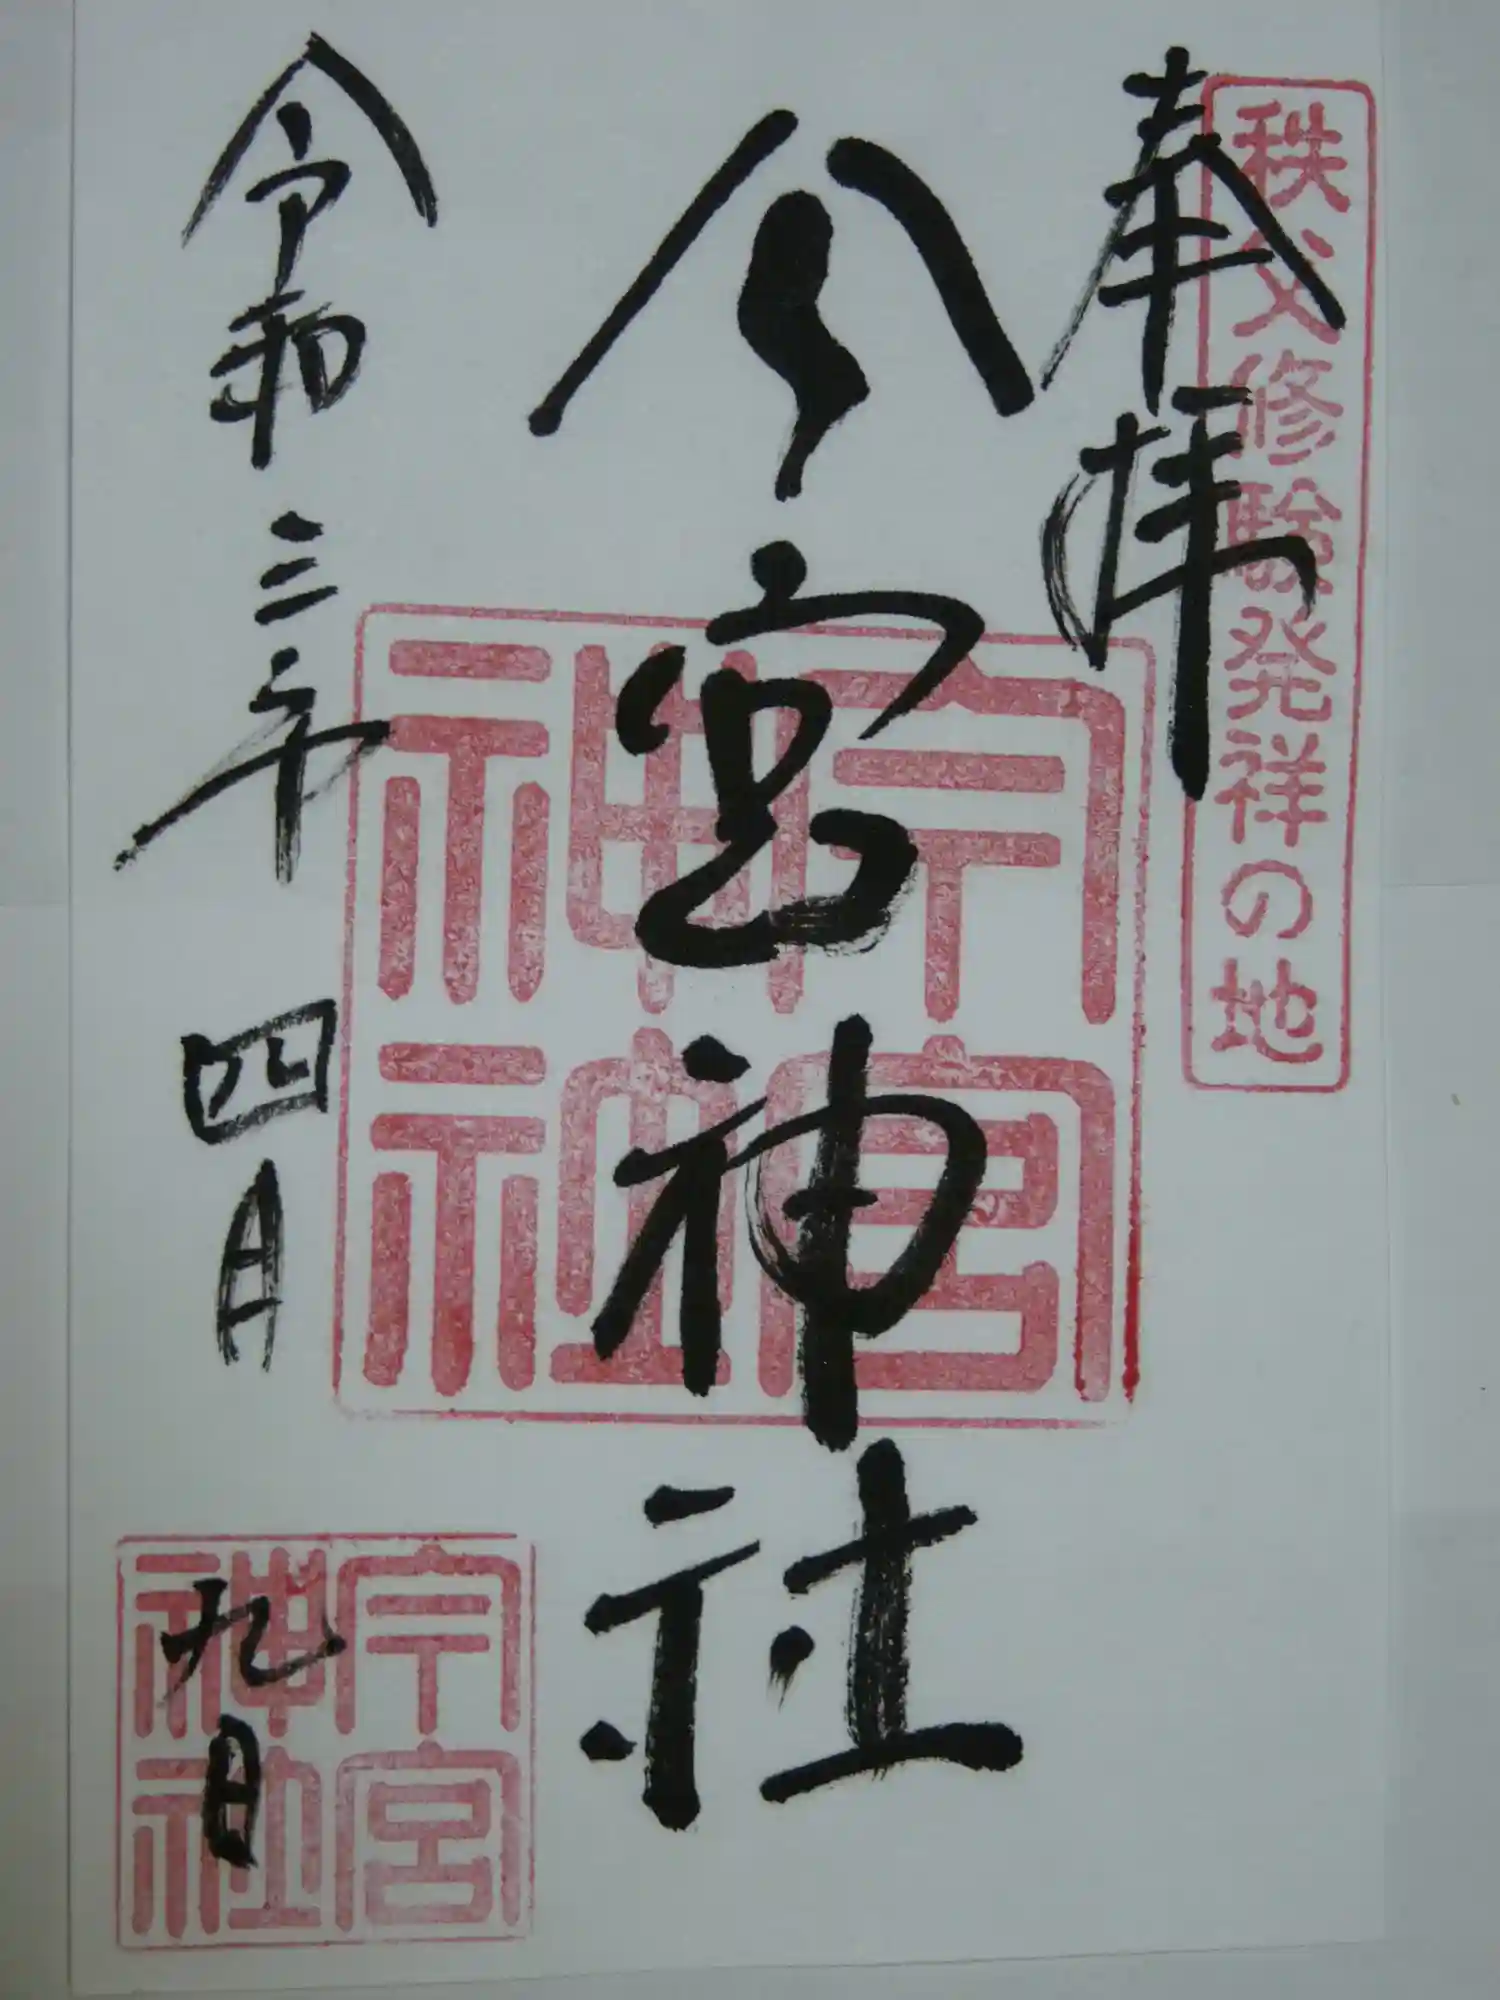 奉拝
秩父修験発祥の地
今宮神社
今宮神社
令和三年四月九日
今宮神社